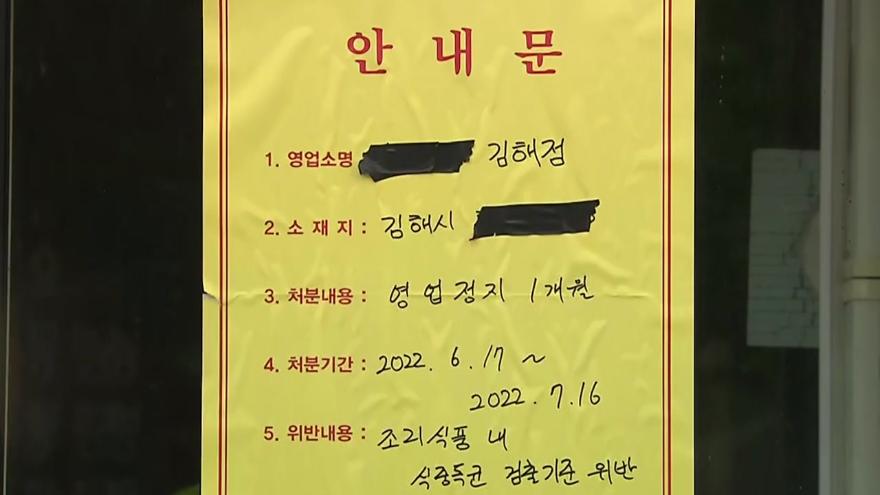 안내문
1. 영업소명 김해점
2. 소재지 : 김해시
3. 처분내용 : 영업정지 1개월
4. 처분기간 : 2022. 6. 17 ~
2022. 7. 16
5. 위반내용 : 조리식품 내
식중독균 검출기준 위반